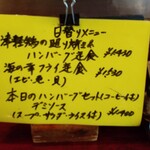 日替りメニュー
津軽鶏の照り焼き&
ハンバーグ定食 ¥1450
海の幸フライ定食 ¥1580
(エビ・魚・貝)
本日のハンバーグセット(コーヒー付)
デミソース
(スープ サラダ ライス付) ¥1400